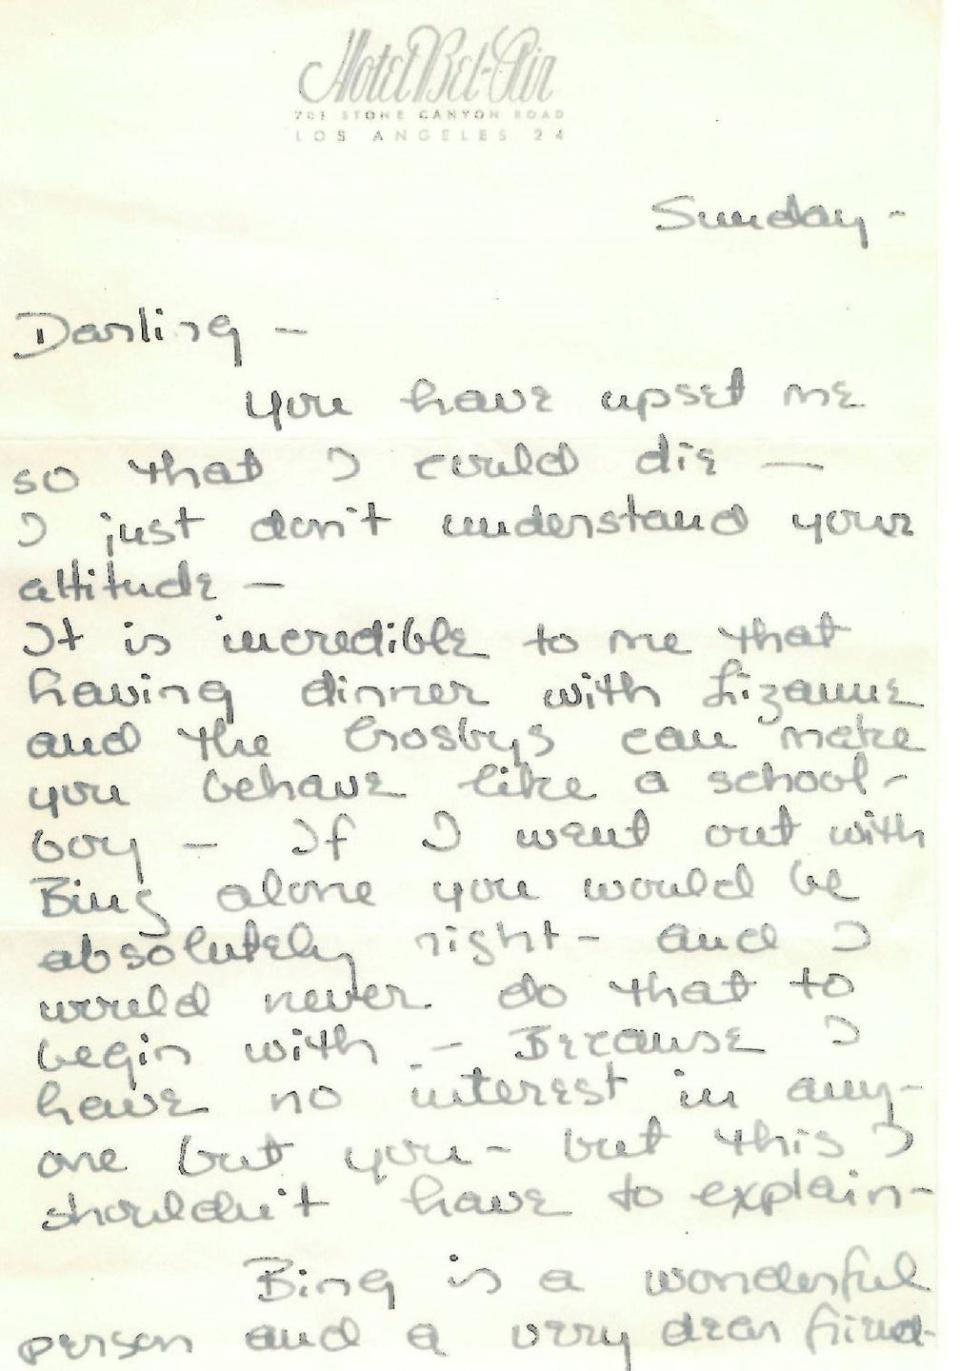 Hotel Bel-Air
701 STONE CANYON ROAD
LOS ANGELES 24
Sunday -
Darling -
you have upset me
so that I could die —
I just don't understand your
attitude —
It is incredible to me that
having dinner with Lizanne
and the Crosbys can make
you behave like a school-
boy - If I went out with
Bing alone you would be
absolutely right - and I
would never do that to
begin with - Because I
have no interest in any-
one but you - but this I
shouldn't have to explain -
Bing is a wonderful
person and a very dear friend-